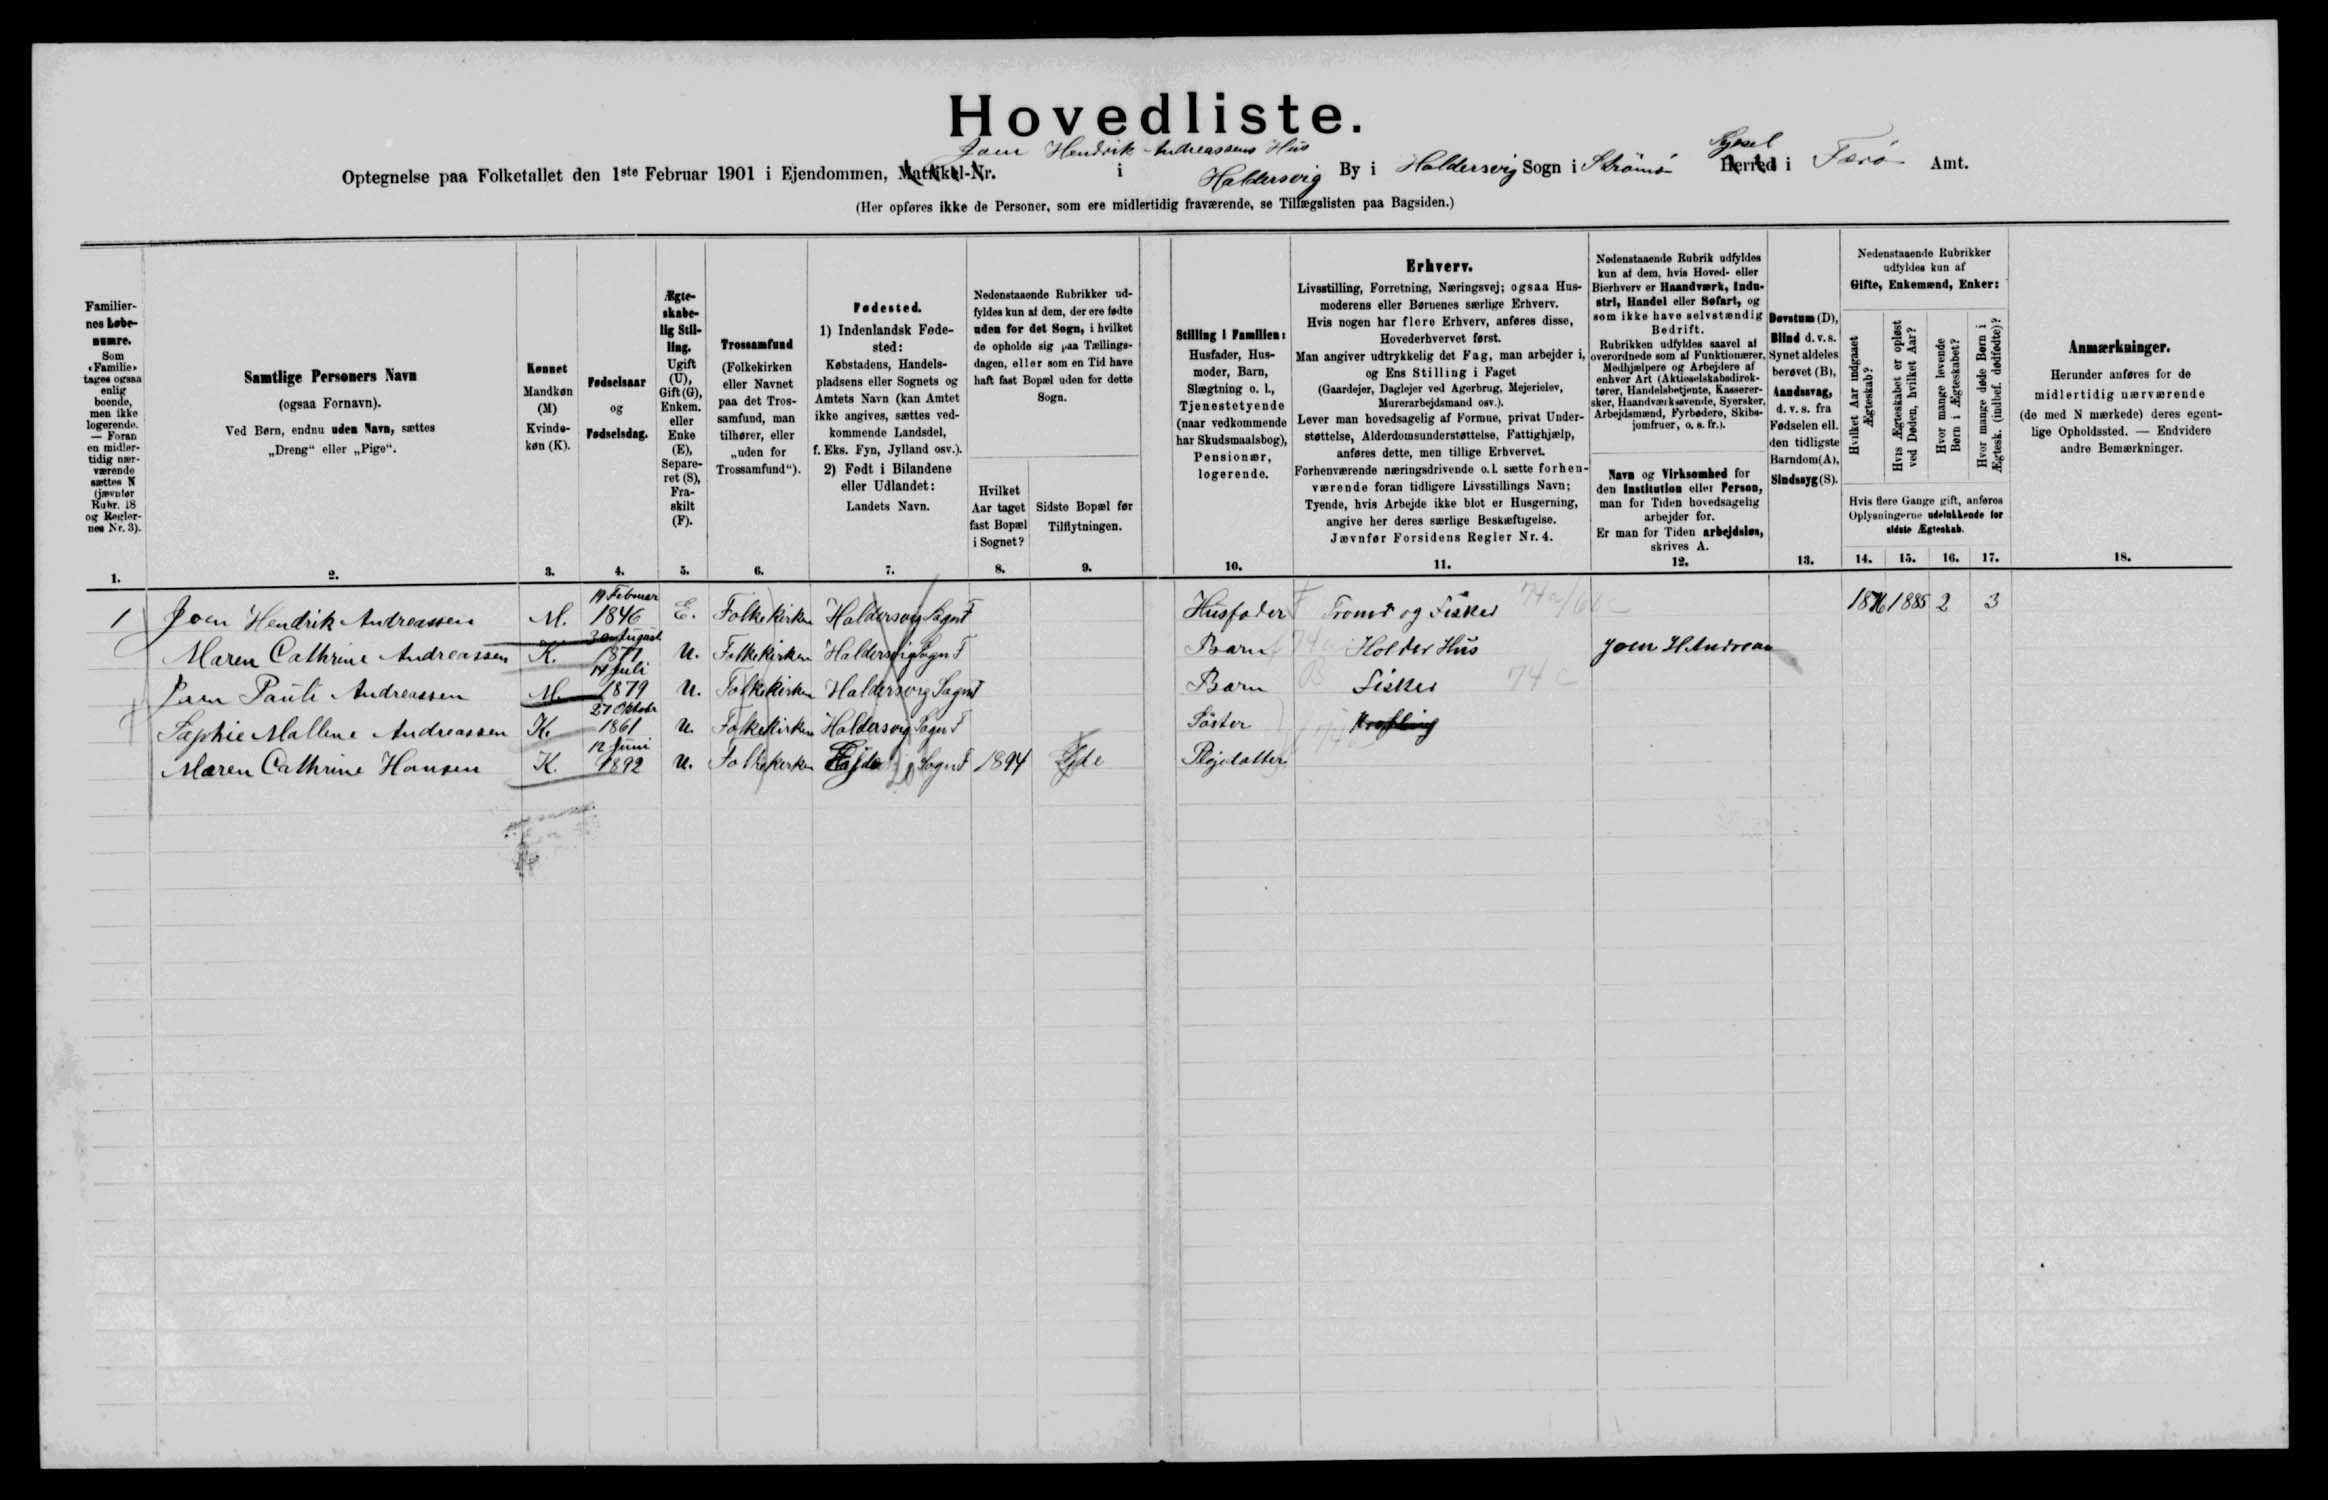 Hovedliste.
Joen Hendrik Andreassens Hus
Optegnelse paa Folketallet den 1ste Februar 1901 i Ejendommen, Matrikel-Nr. i Haldersvig By i Haldersvig Sogn i Strømø Herred i Færø Amt.
Sysel
(Her opføres ikke de Personer, som ere midlertidig fraværende, se Tillægslisten paa Bagsiden.)
Familier-
nes Løbe-
numre.
Som
«Familie»
tages ogsaa
enlig
boende,
men ikke
logerende.
— Foran
en midler-
tidig nær-
værende
sættes N
(jævnfør
Rubr. 18
og Regler-
nes Nr. 3).
1.
Samtlige Personers Navn
(ogsaa Fornavn).
Ved Børn, endnu uden Navn, sættes
„Dreng“ eller „Pige“.
2.
Kønnet
Mandkøn
(M)
Kvinde-
køn (K).
3.
Fødselsaar
og
Fødselsdag.
4.
Ægte-
skabe-
lig Stil-
ling.
Ugift
(U),
Gift (G),
Enkem.
eller
Enke
(E),
Separe-
ret (S),
Fra-
skilt
(F).
5.
Trossamfund
(Folkekirken
eller Navnet
paa det Tros-
samfund, man
tilhører, eller
„uden for
Trossamfund“).
6.
Fødested.
1) Indenlandsk Føde-
sted:
Købstadens, Handels-
pladsens eller Sognets og
Amtets Navn (kan Amtet
ikke angives, sættes ved-
kommende Landsdel,
f. Eks. Fyn, Jylland osv.).
2) Født i Bilandene
eller Udlandet:
Landets Navn.
7.
Nedenstaaende Rubrikker ud-
fyldes kun af dem, der ere fødte
uden for det Sogn, i hvilket
de opholde sig paa Tællings-
dagen, eller som en Tid have
haft fast Bopæl uden for dette
Sogn.
Hvilket
Aar taget
fast Bopæl
i Sognet?
8.
Sidste Bopæl før
Tilflytningen.
9.
Stilling i Familien:
Husfader, Hus-
moder, Barn,
Slægtning o. l.,
Tjenestetyende
(naar vedkommende
har Skudsmaalsbog),
Pensionær,
logerende.
10.
Erhverv.
Livsstilling, Forretning, Næringsvej; ogsaa Hus-
moderens eller Børnenes særlige Erhverv.
Hvis nogen har flere Erhverv, anføres disse,
Hovederhvervet først.
Man angiver udtrykkelig det Fag, man arbejder i,
og Ens Stilling i Faget
(Gaardejer, Daglejer ved Agerbrug, Mejerielev,
Murerarbejdsmand osv.).
Lever man hovedsagelig af Formue, privat Under-
støttelse, Alderdomsunderstøttelse, Fattighjælp,
anføres dette, men tillige Erhvervet.
Forhenværende næringsdrivende o. l. sætte forhen-
værende foran tidligere Livsstillings Navn;
Tyende, hvis Arbejde ikke blot er Husgerning,
angive her deres særlige Beskæftigelse.
Jævnfør Forsidens Regler Nr. 4.
11.
Nedenstaaende Rubrik udfyldes
kun af dem, hvis Hoved- eller
Bierhverv er Haandværk, Indu-
stri, Handel eller Søfart, og
som ikke have selvstændig
Bedrift.
Rubrikken udfyldes saavel af
overordnede som af Funktionærer,
Medhjælpere og Arbejdere af
enhver Art (Aktieselskabsdirek-
tører, Handelsbetjente, Kasserer-
sker, Haandværkssvende, Syersker,
Arbejdsmænd, Fyrbødere, Skibs-
jomfruer, o. s. fr.).
Navn og Virksomhed for
den Institution eller Person,
man for Tiden hovedsagelig
arbejder for.
Er man for Tiden arbejdsløs,
skrives A.
12.
Døvstum (D),
Blind d. v. s.
Synet aldeles
berøvet (B),
Aandssvag,
d. v. s. fra
Fødselen ell.
den tidligste
Barndom (A),
Sindssyg (S).
13.
Nedenstaaende Rubrikker
udfyldes kun af
Gifte, Enkemænd, Enker:
Hvilket Aar indgaaet
Ægteskab?
Hvis Ægteskabet er opløst
ved Døden, hvilket Aar?
Hvor mange levende
Børn i Ægteskabet?
Hvor mange døde Børn i
Ægtesk. (indbef. dødfødte)?
Hvis flere Gange gift, anføres
Oplysningerne udelukkende for
sidste Ægteskab.
14. 15. 16. 17.
Anmærkninger.
Herunder anføres for de
midlertidig nærværende
(de med N mærkede) deres egent-
lige Opholdssted. — Endvidere
andre Bemærkninger.
18.
1 Joen Hendrik Andreassen M. 19 Februar 1846 E. Folkekirken Haldersvig Sogn F Husfader Tromd og Fisker 74a/61c 1876 1885 2 3
Maren Cathrine Andreassen K. 30 August 1877 U. Folkekirken Haldersvig Sogn F Barn Holder Hus Joen H Andreas
Joen Pauli Andreassen M. 14 Juli 1879 U. Folkekirken Haldersvig Sogn F Barn Fisker 74 c
Sophie Mallene Andreassen K. 27 Oktobr 1861 U. Folkekirken Haldersvig Sogn F Søster
Maren Cathrine Hansen K. 12 Juni 1892 U. Folkekirken Ejde Sogn F 1894 Ejde Plejedatter